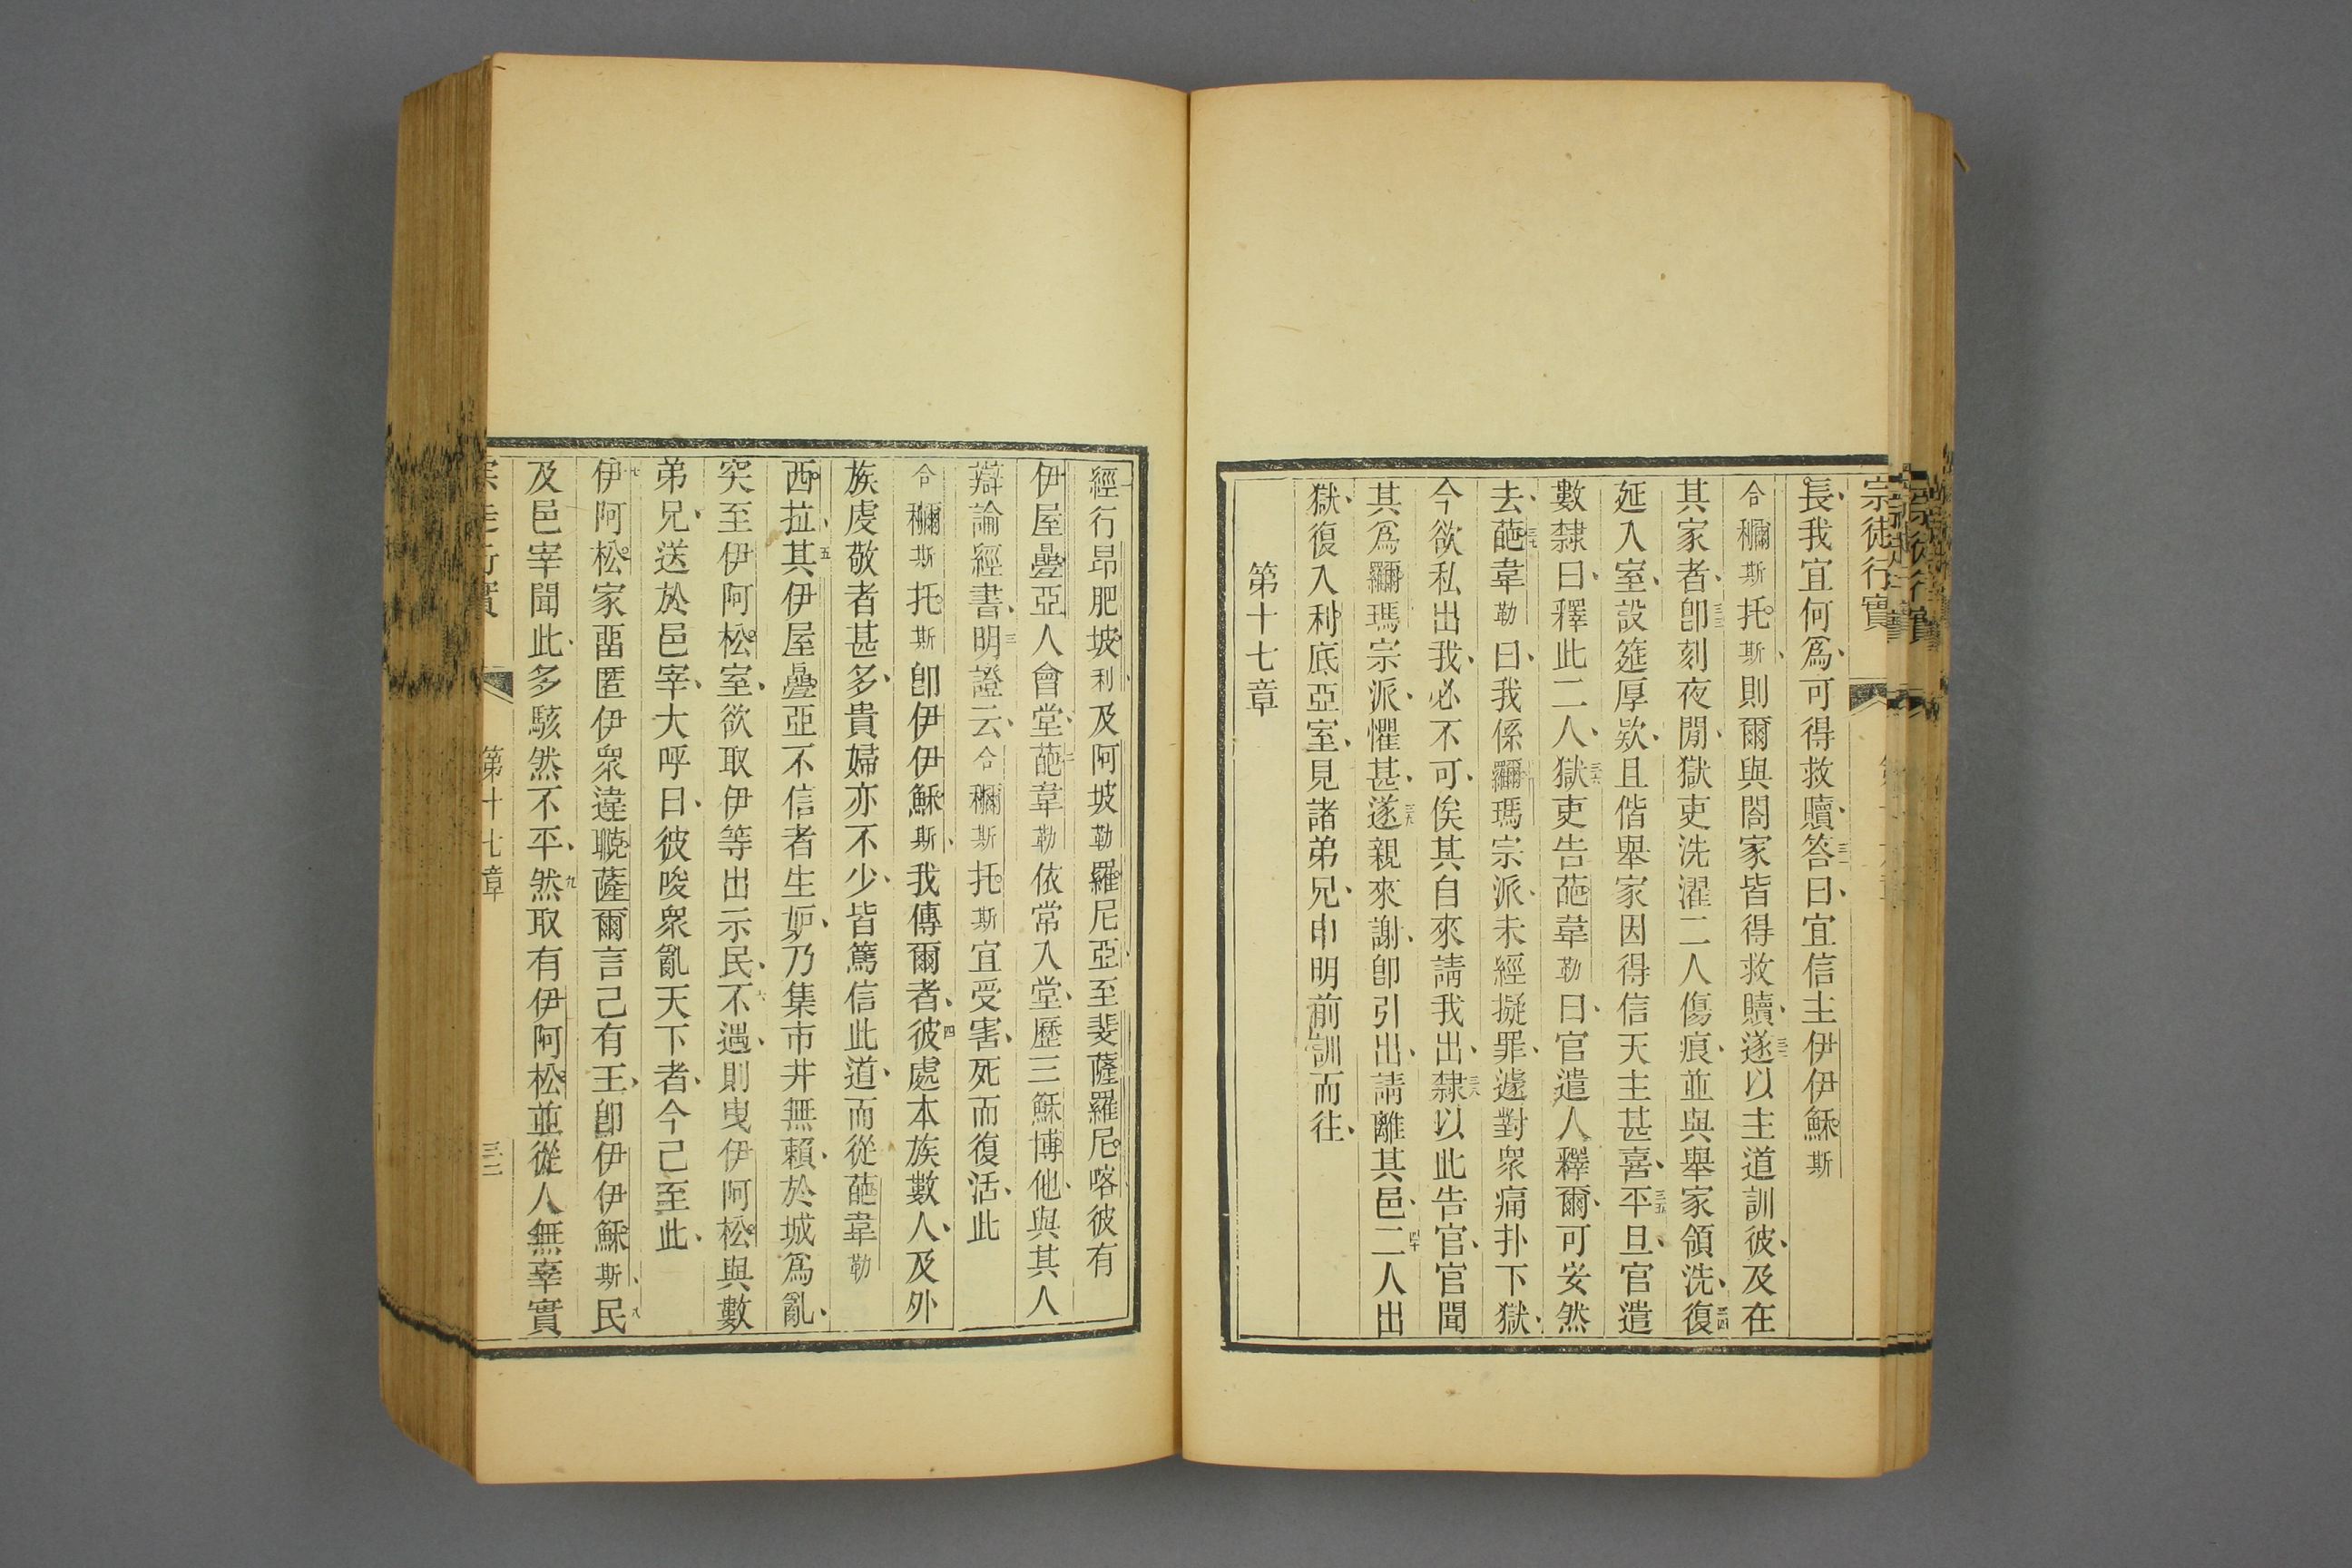 宗徒行實
長、我宜何爲、可得救贖、三一答曰、宜信主伊伊穌斯
合穪斯托斯、則爾與閤家皆得救贖、三二遂以主道訓彼、及在
其家者、三三卽刻夜閒、獄吏洗濯二人傷痕、並與舉家領洗、三四復
延入室、設筵厚欵、且偕舉家因得信天主甚喜、三五平旦、官遣
數隸曰、釋此二人、三六獄吏告葩韋勒曰、官遣人釋爾、可妥然
去、三七葩韋勒曰、我係羅瑪宗派、未經擬罪、遽對衆痛扑下獄、
今欲私出我、必不可、俟其自來請我出、三八隸以此告官、官聞
其爲羅瑪宗派、懼甚、三九遂親來謝、卽引出、請離其邑、四十二人出
獄、復入利底亞室、見諸弟兄、申明前訓而往、
第十七章
一經行昻肥坡利、及阿坡勒羅尼亞、至斐薩羅尼喀、彼有
伊屋疊亞人會堂、二葩韋勒依常入堂、歷三穌博他、與其人
辯論經書、三明證云、合穪斯托斯宜受害、死而復活、此
合穪斯托斯卽伊伊穌斯、我傳爾者、四彼處本族數人、及外
族虔敬者甚多、貴婦亦不少、皆篤信此道、而從葩韋勒
西拉、五其伊屋疊亞不信者生妒、乃集市井無賴、於城爲亂、
突至伊阿松室、欲取伊等出示民、六不遇、則曳伊阿松與數
弟兄、送於邑宰、大呼曰、彼唆衆亂天下者、今已至此、
七伊阿松家畱匿伊衆違聴薩爾言己有王、卽伊伊穌斯、八民
及邑宰聞此、多駭然不平、九然取有伊阿松並從人無辜實
宗徒行實 第十七章 三二